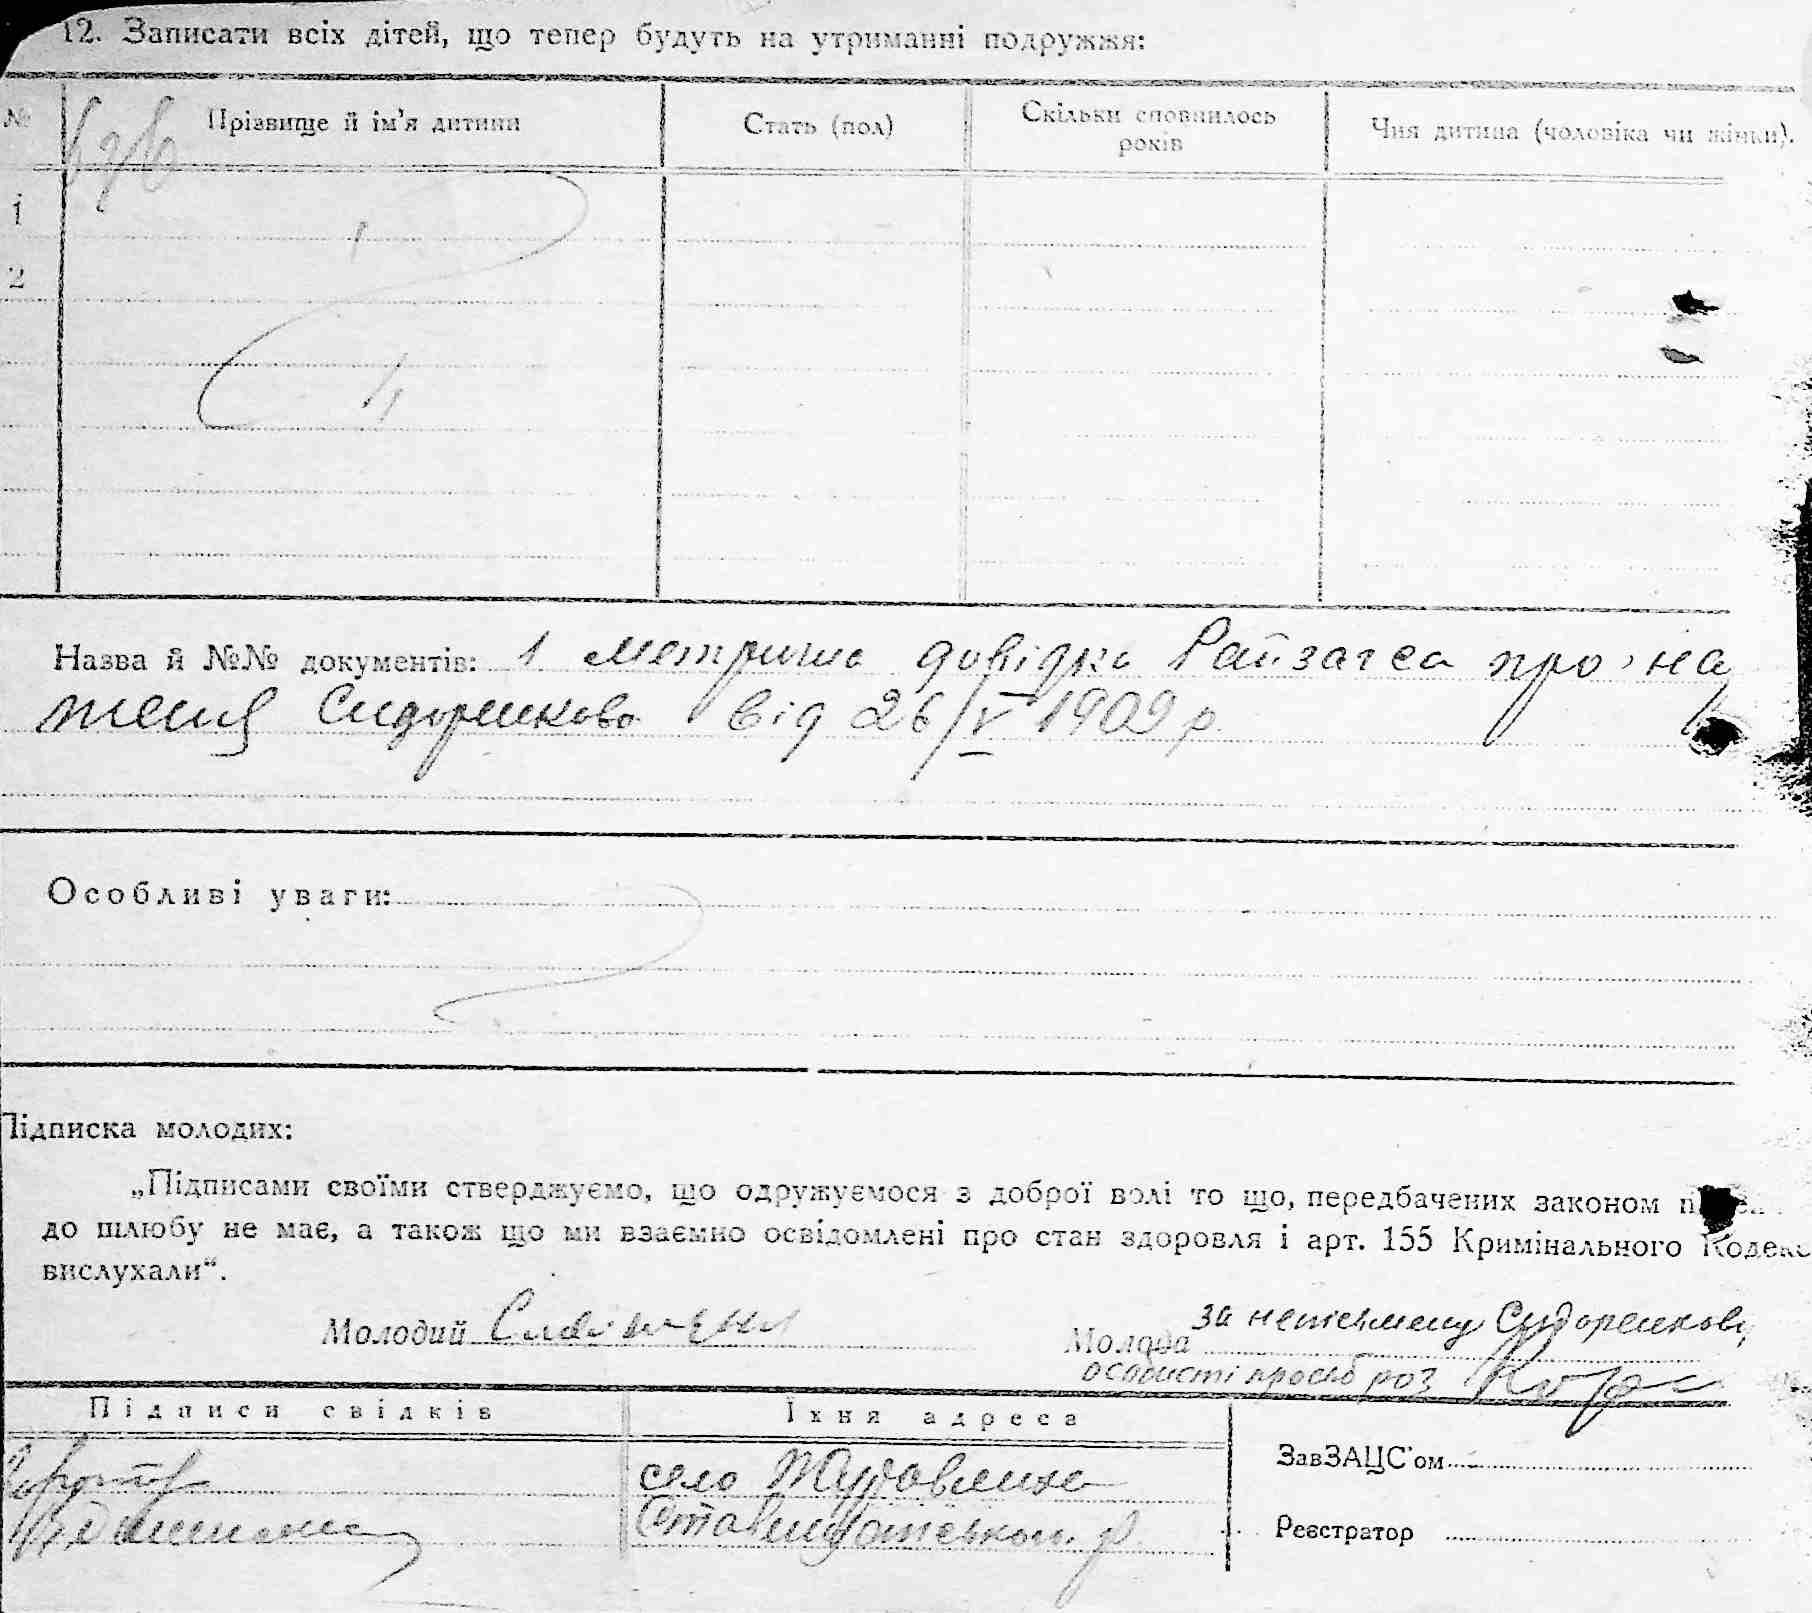 12. Записати всіх дітей, що тепер будуть на утриманні подружжя:
№ Прізвище й ім'я дитини Стать (пол) Скільки сповнилось років Чия дитина (чоловіка чи жінки).
1
2
Назва й №№ документів: 1 метрична довідка Райзагса про на
ження Сидоренкова від 26/V 1909 р.
Особливі уваги:
Підписка молодих:
„Підписами своїми стверджуємо, що одружуємося з доброї волі то що, передбачених законом
до шлюбу не має, а також що ми взаємно освідомлені про стан здоровля і арт. 155 Кримінального Кодекс
вислухали“.
Молодий
за неписьмену Сидоренкову
Молода
особисті прозьб роз
Підписи свідків Їхня адреса
село
ЗавЗАЦС'ом
Реєстратор